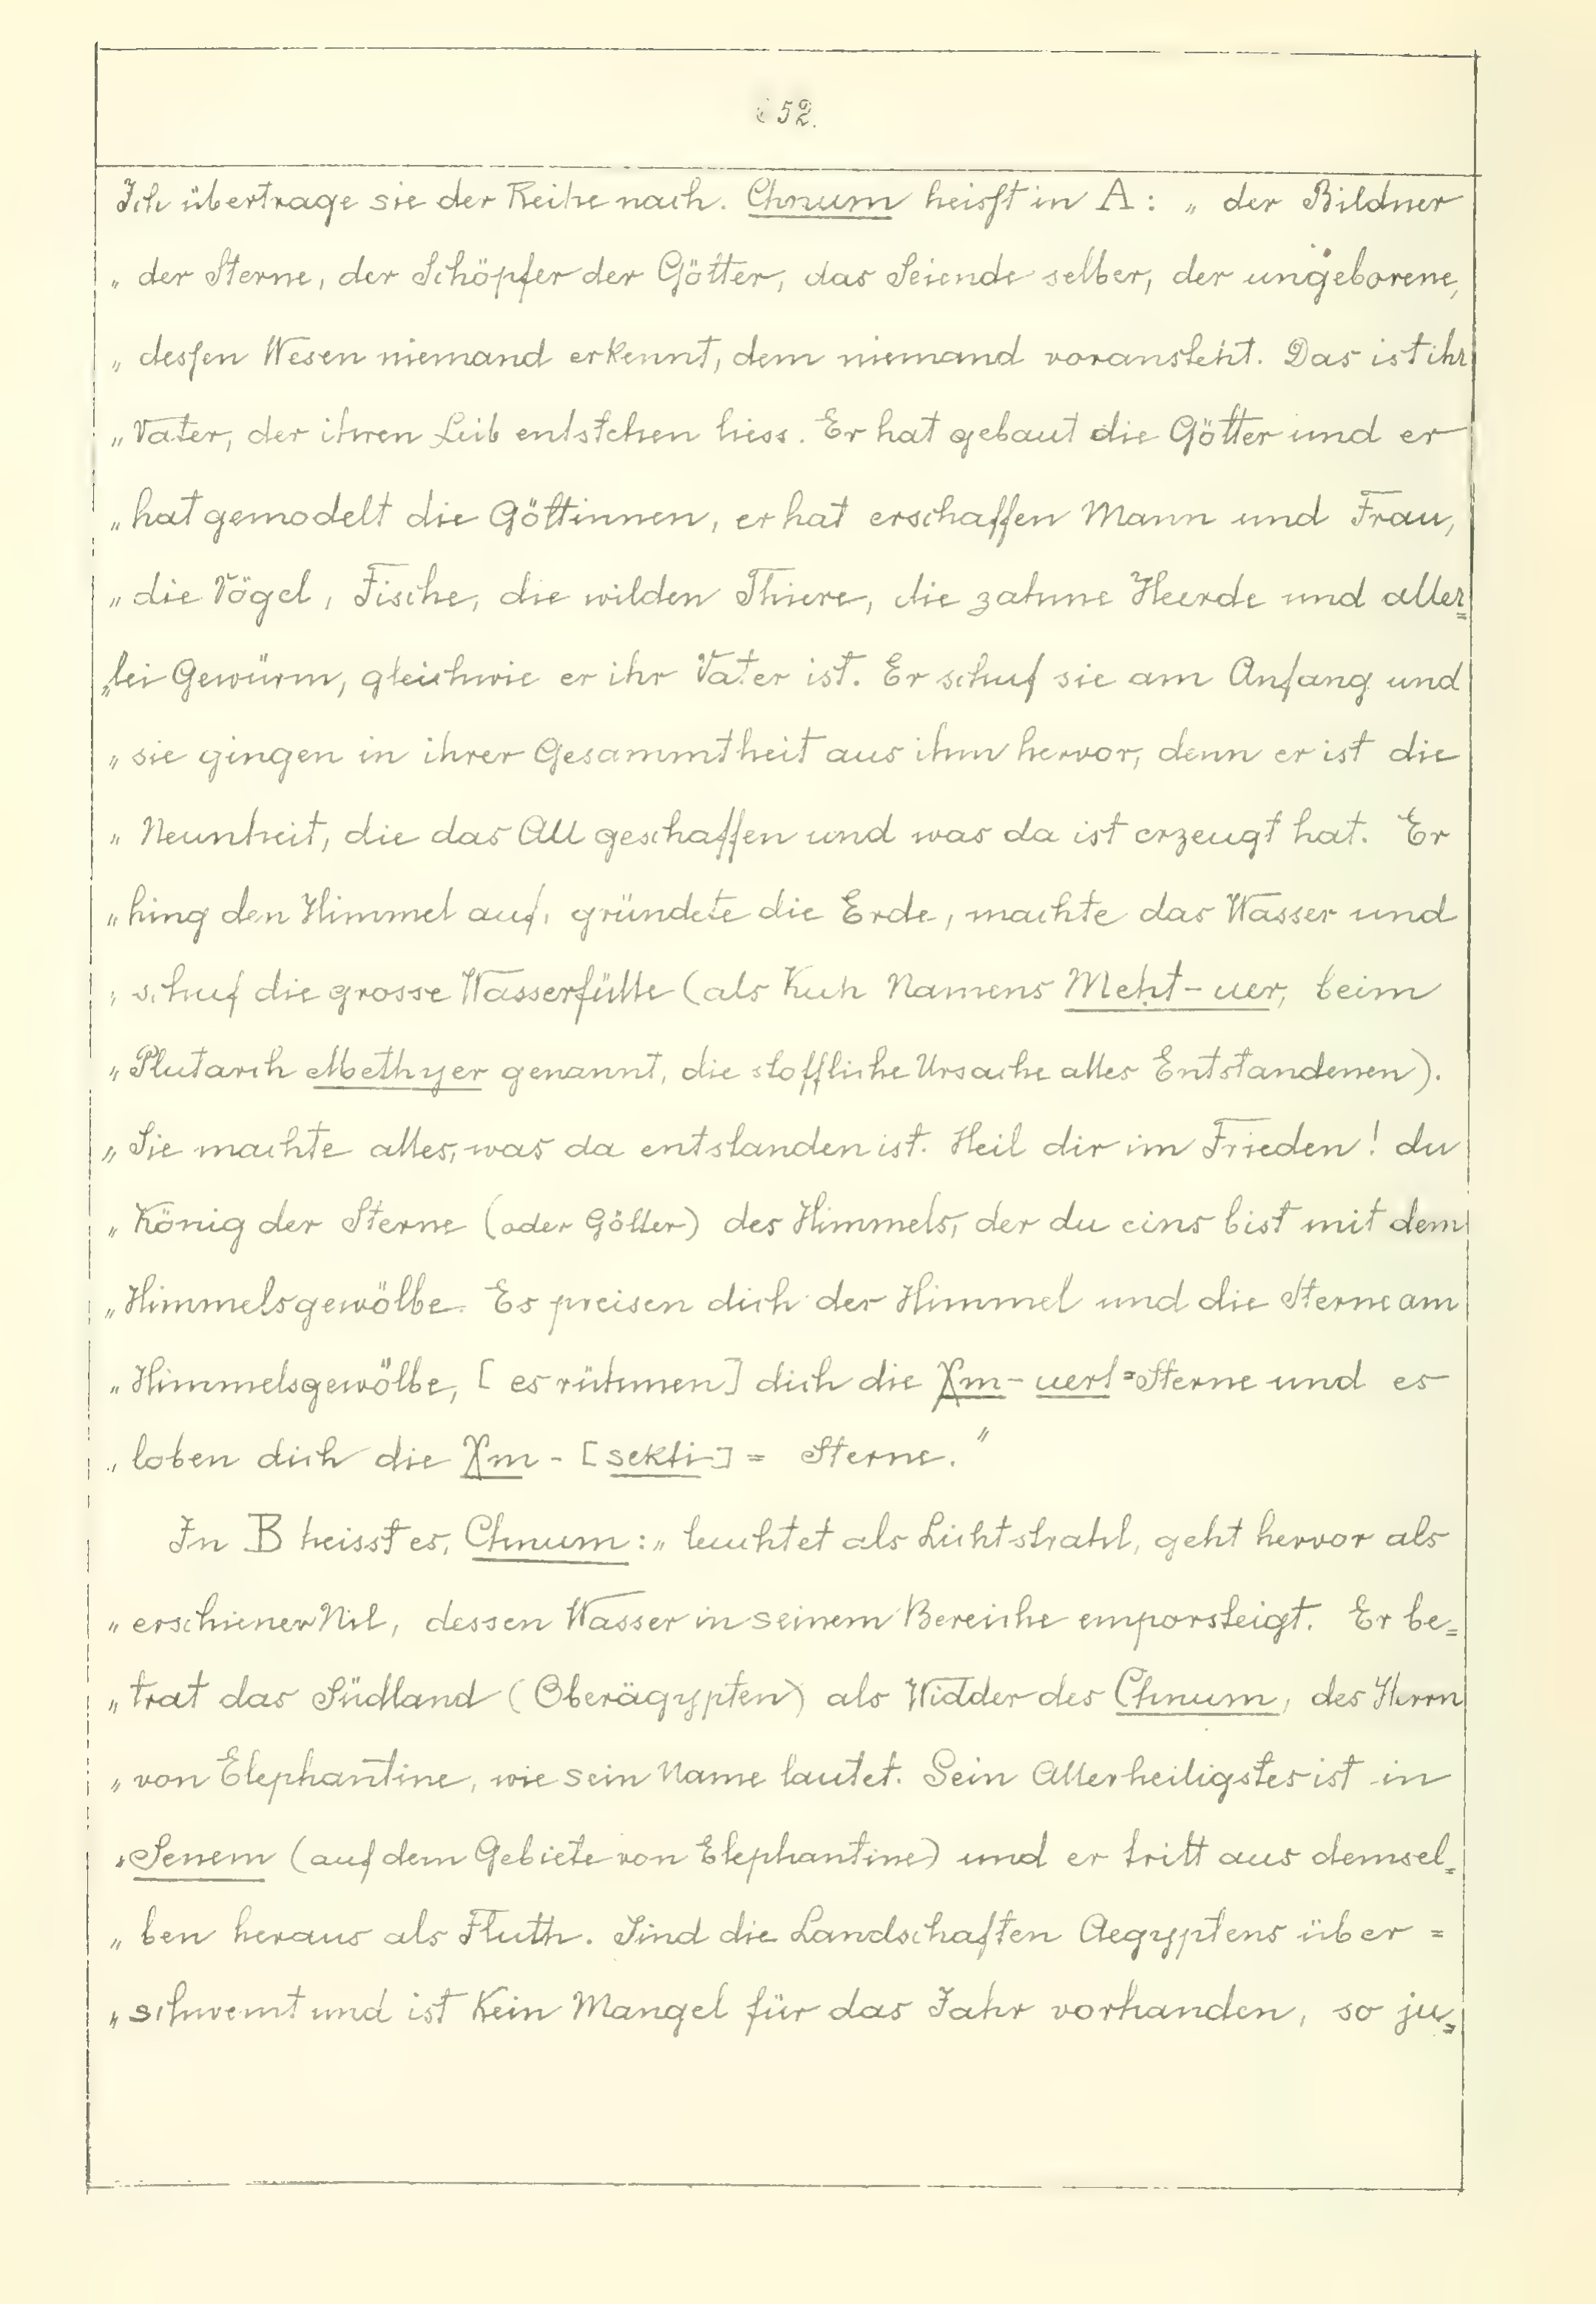 52.
Ich übertrage sie der Reihe nach. Chnum heisst in A: „ der Bildner
„ der Sterne, der Schöpfer der Götter, das Seiende selber, der ungeborene,
„ dessen Wesen niemand erkennt, dem niemand voransteht. Das ist ihr
„ Vater, der ihren Leib entstehen hiess. Er hat gebaut die Götter und er
„ hat gemodelt die Göttinnen, er hat erschaffen Mann und Frau,
„ die Vögel, Fische, die wilden Thiere, die zahme Heerde und aller=
„ lei Gewürm, gleichwie er ihr Vater ist. Er schuf sie am Anfang und
„ sie gingen in ihrer Gesammtheit aus ihm hervor, denn er ist die
„ Neunheit, die das All geschaffen und was da ist erzeugt hat. Er
„ hing den Himmel auf, gründete die Erde, machte das Wasser und
„ schuf die grosse Wasserfülle (als Kuh Namens Meḥt-uer, beim
„ Plutarch Methyer genannt, die stoffliche Ursache alles Entstandenen).
„ Sie machte alles, was da entstanden ist. Heil dir im Frieden! du
„ König der Sterne (oder Götter) des Himmels, der du eins bist mit dem
„ Himmelsgewölbe. Es preisen dich der Himmel und die Sterne am
„ Himmelsgewölbe, [es rühmen] dich die χm-uert=Sterne und es
„ loben dich die χm-[sekti]= Sterne.“
In B heisst es, Chnum: „ leuchtet als Lichtstrahl, geht hervor als
„ erschiener Nil, dessen Wasser in seinem Bereiche emporsteigt. Er be=
„ trat das Südland (Oberägypten) als Widder des Chnum, des Herrn
„ von Elephantine, wie sein Name lautet. Sein Allerheiligstes ist in
„ Senem (auf dem Gebiete von Elephantine) und er tritt aus demsel=
„ ben heraus als Fluth. Sind die Landschaften Aegyptens über=
„ schwemt und ist kein Mangel für das Jahr vorhanden, so ju=